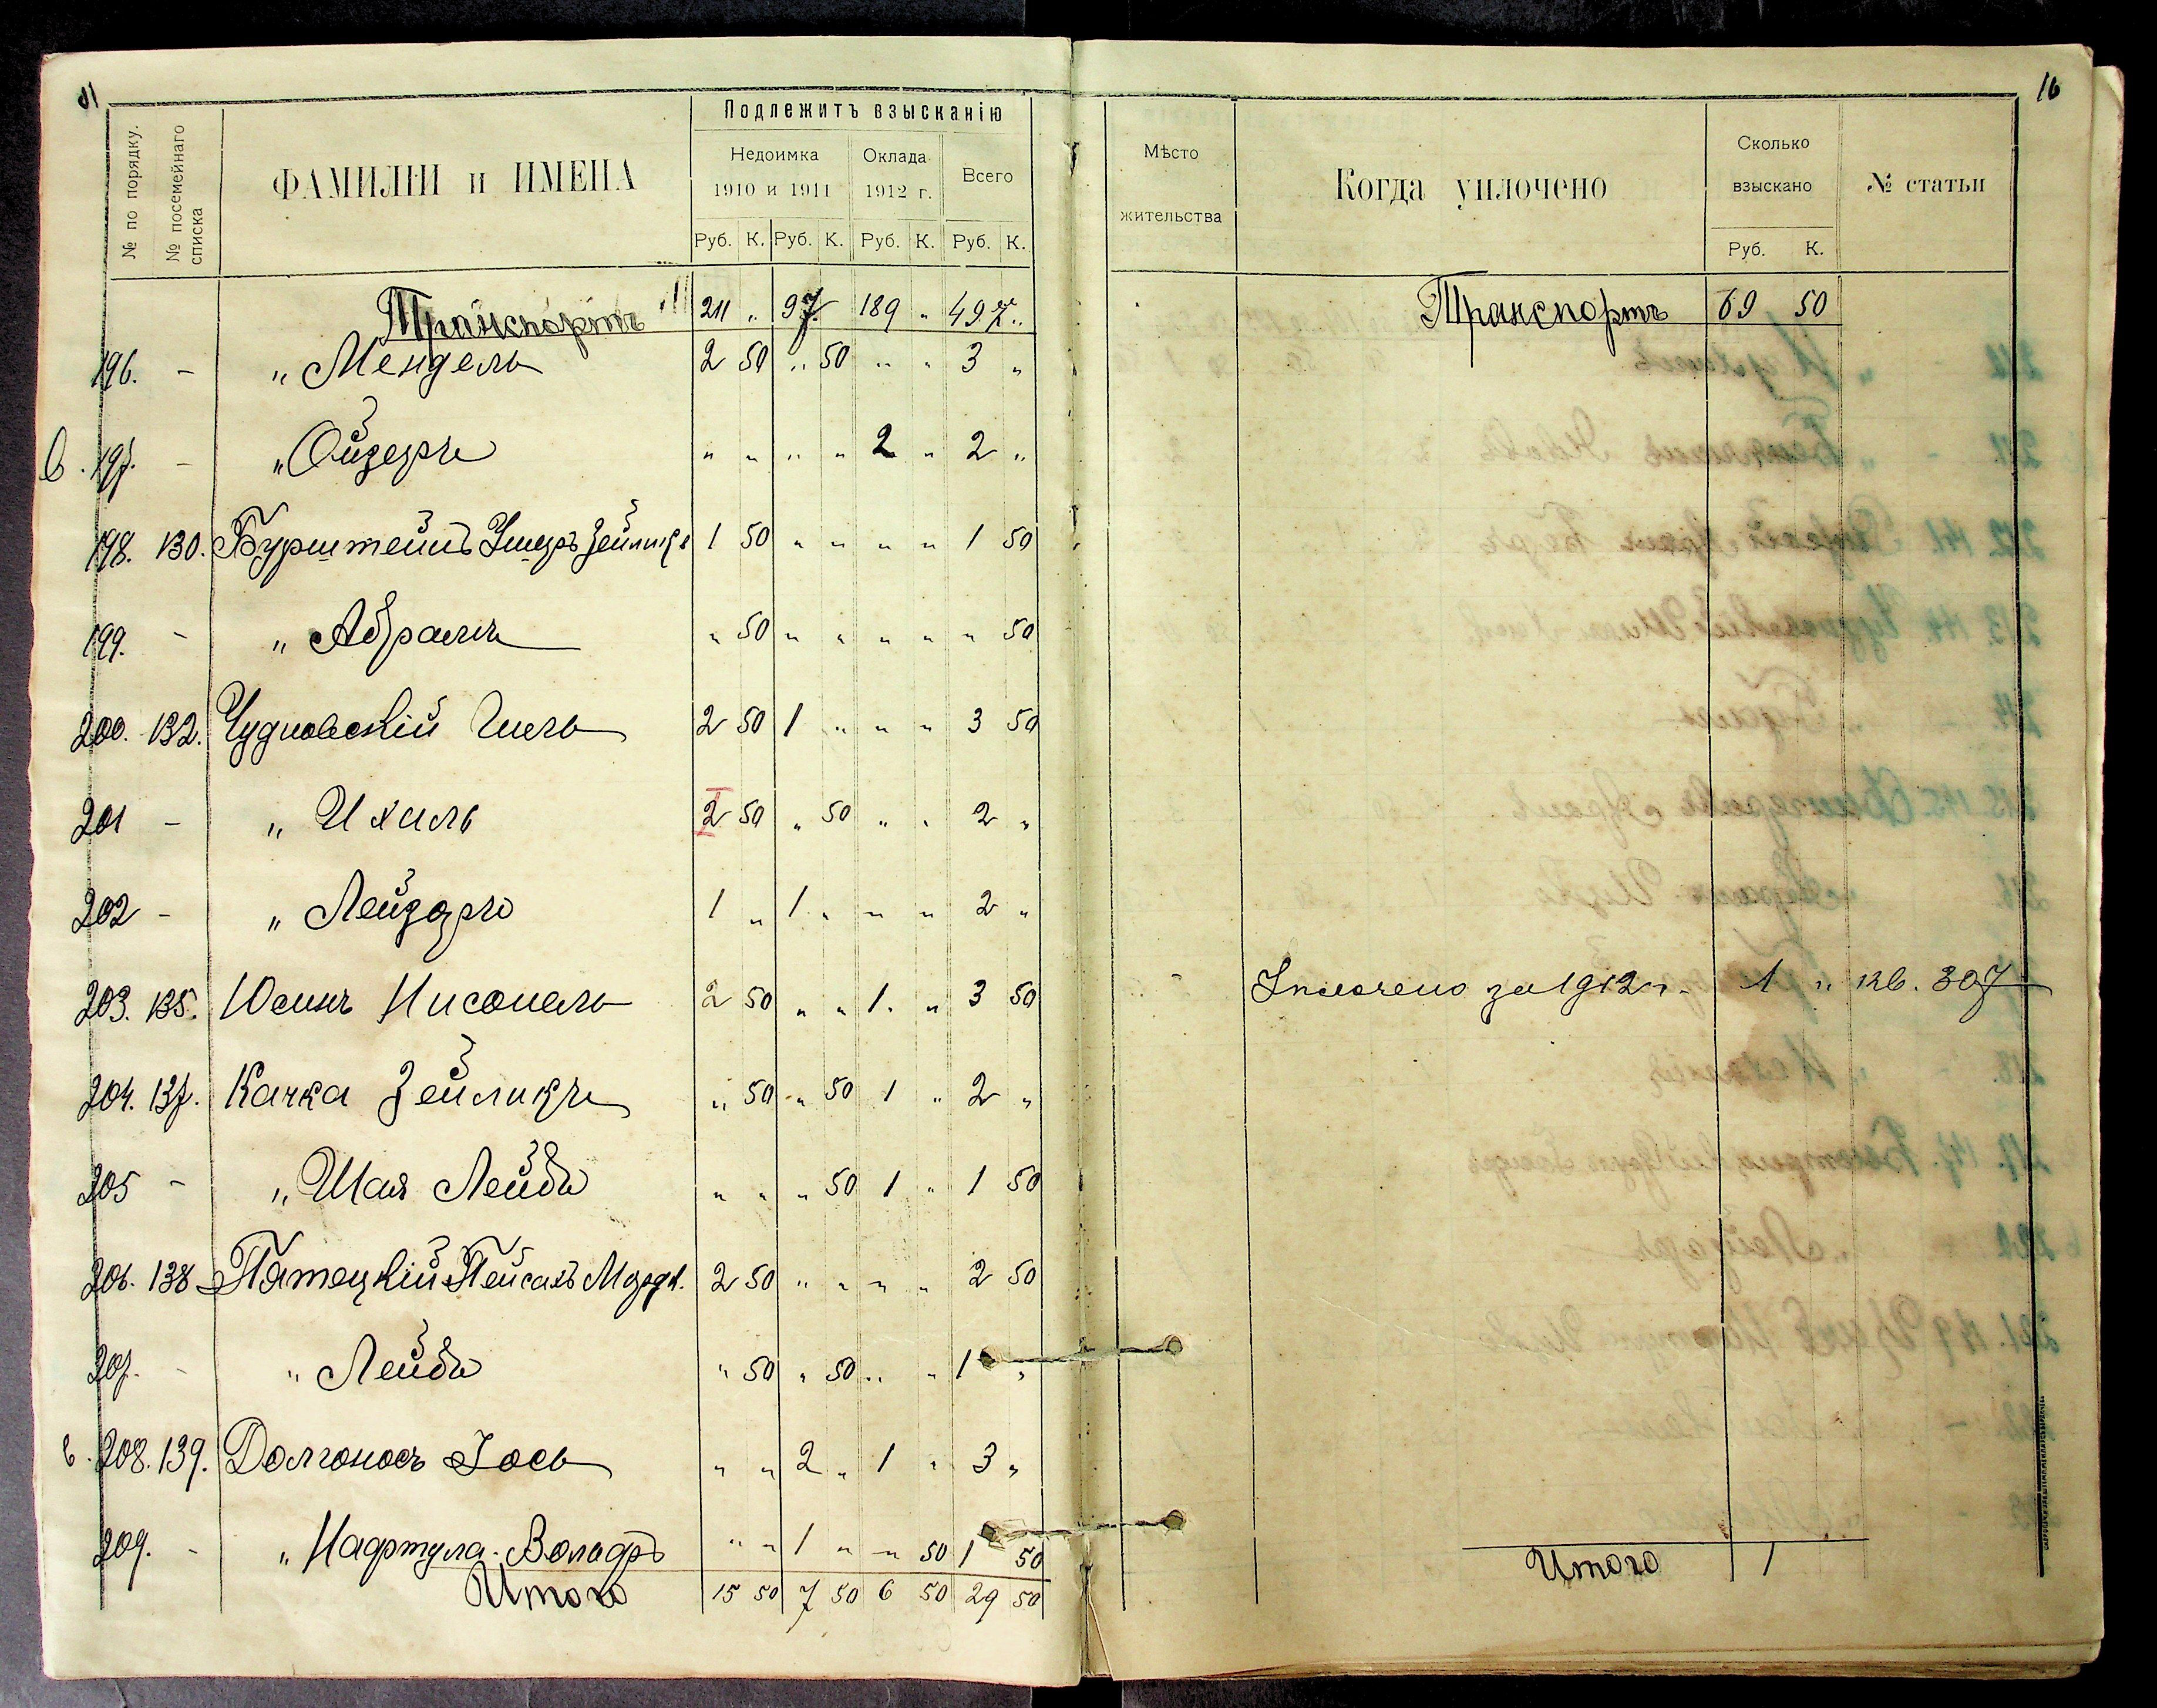 11
№ по порядку.
№ посемейнаго списка
ФАМИЛІИ и ИМЕНА
Подлежитъ взысканію
Недоимка Оклада Всего
1910 и 1911 1912 г.
Руб. К. Руб. К. Руб. К. Руб. К.
Транспортъ 211 „ 97 189 „ 497 „
196. - „ Мендель 2 50 „ 50 „ „ 3 „
в. 197. - „ Ойзеръ „ „ „ „ 2 „ 2 „
198. 130. Бурштейнъ Ушеръ Зейликъ 1 50 „ „ „ „ 1 50
199. - „ Абрамъ „ 50 „ „ „ „ „ 50
200. 132. Чудновскій 2 50 1 „ „ „ 3 50
201 - „ Ихиль 2 50 „ 50 „ „ 2 „
202 - „ Лейзоръ 1 „ 1 „ „ „ 2 „
203. 135. 2 50 „ „ 1. „ 3 50
204. 137. Качка Зейликъ „ 50 „ 50 1 „ 2 „
205 - „ Шая Лейбъ „ „ „ 50 1 „ 1 50
206. 138 Пятецкій Пейсахъ Мордк. 2 50 „ „ „ „ 2 50
207. - „ Лейбъ „ 50 „ 50 „ „ 1 „
в. 208. 139. Долгоносъ Іось „ „ 2 „ 1 „ 3 „
209. - „ Нафтула-Вольфъ „ „ 1 „ „ 50 1 50
Итого 15 50 7 50 6 50 29 50
16
Мѣсто жительства
Когда уплочено
Сколько взыскано
Руб. К.
№ статьи
Транспортъ 69 50
Уплочено за 1912 г. 1 „ кв. 307
Итого 1